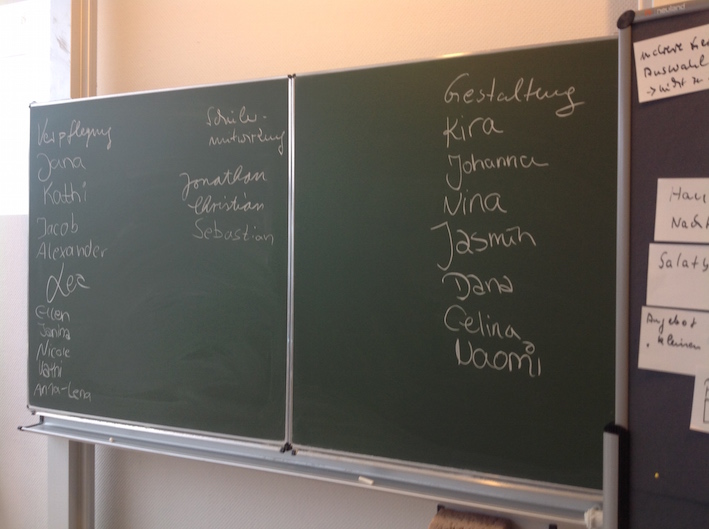 Verpflegung
Jana
Kathi
Jacob
Alexander
Lea
Ellen
Janina
Nicole
Kathi
Anna-Lena
Schüler-
mitwirkung
Jonathan
Christian
Sebastian
Gestaltung
Kira
Johanna
Nina
Jasmin
Dana
Celina
Naomi
neuland
mehrere
Auswahl
→ nicht
Salat
Angebot